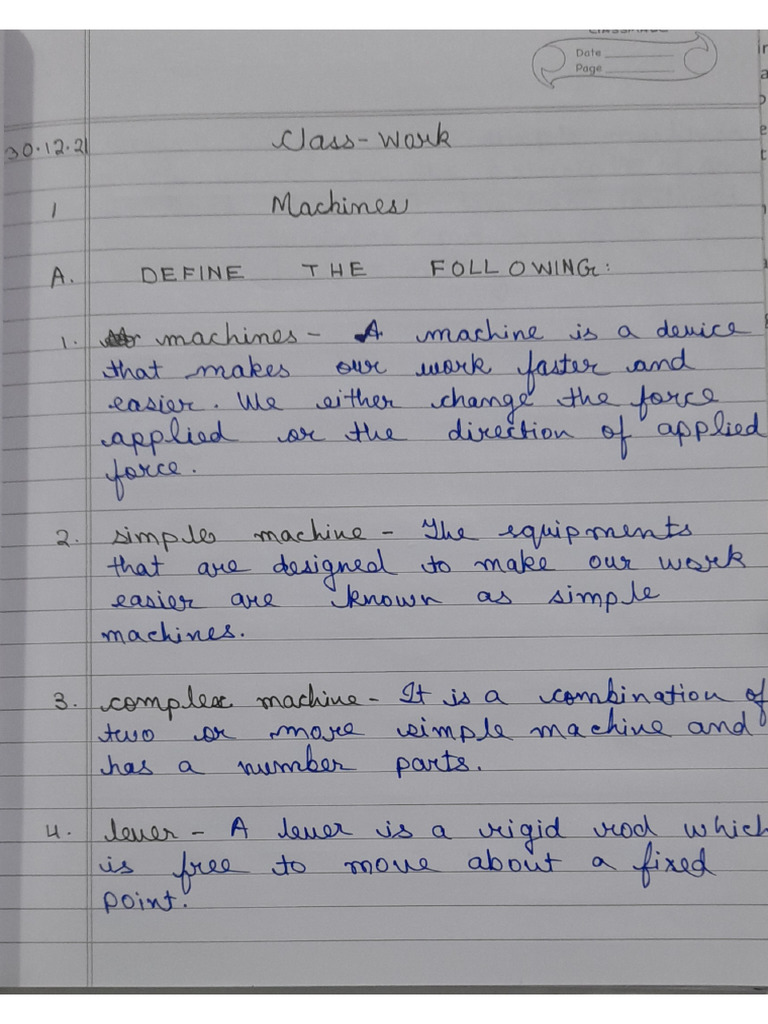 Date
Page
30.12.21 Class-Work
1 Machines
A. DEFINE THE FOLLOWING:
1. machines - A machine is a device
that makes our work faster and
easier. We either change the force
applied or the direction of applied
force.
2. simple machine - The equipments
that are designed to make our work
easier are known as simple
machines.
3. complex machine - It is a combination of
two or more simple machine and
has a number parts.
4. lever - A lever is a rigid rod which
is free to move about a fixed
point.